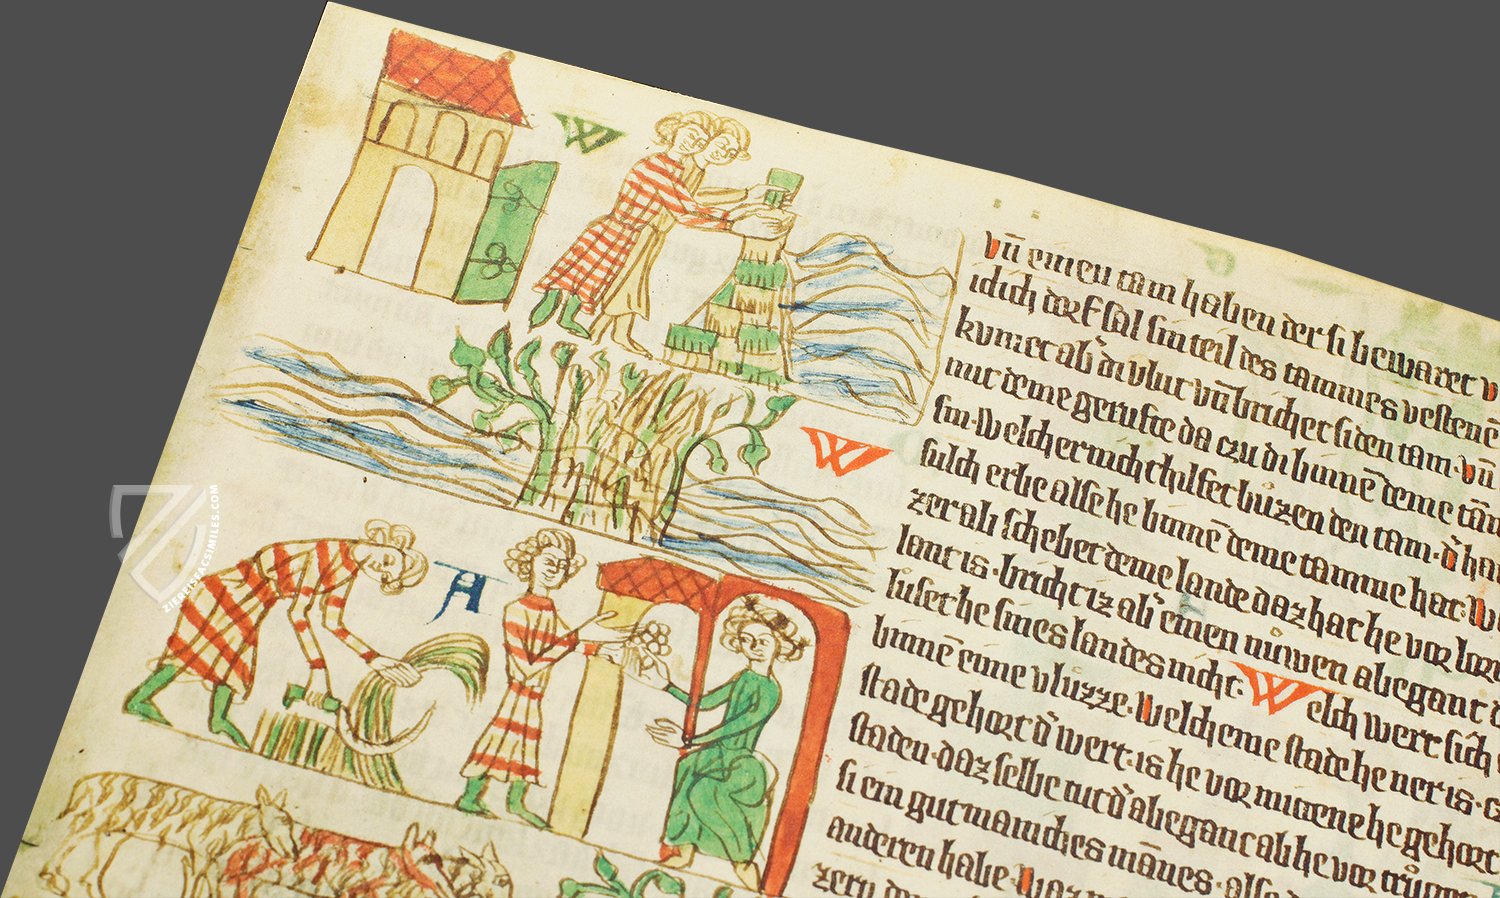 W
W
A
vn̄ einen tam haben der si bewaret v
idich dorf sal sin teil des tammes vestenē
kvmet ab' di vlut vn̄ brichet si den tam. vn̄
mit deme gerufte da czu di binnē deme tām
sin. Welcher nicht hilfet buzen den tam. d' hat
sulch erbe alse he binnē deme tamme hat. W
zer ab schebet deme lande daz hat he vor lorn
lant is. bricht iz ab' einen nuwen abegant d
luset he sines landes nicht. Welch wert sich
binnē eime vluzze. Welcheme stade he ner is. c
stade gehort d' wert. is he vor mittene he gehort
staden. daz selbe tut d' abegant ab he vor
si ein gut manches mānes. alse
anderen habe. waz
zern
ZIEREISFACSIMILES.COM